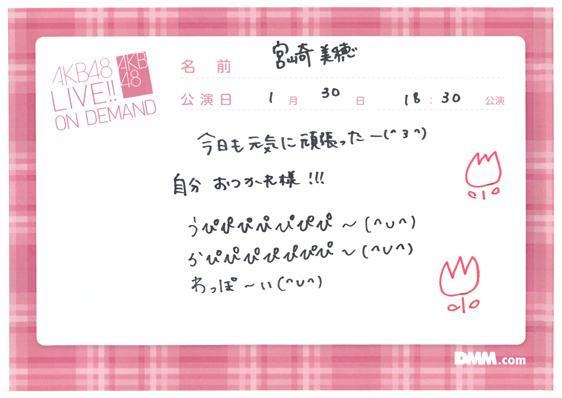 AKB48
LIVE!!
ON DEMAND
AKB
48
名前 宮崎美穂
公演日 1月 30日 18:30 公演
今日も元気に頑張ったー(^3^)
自分 おつかれ様!!!
うぴぴぴぴぴぴぴ~(^∪^)
かぴぴぴぴぴぴぴ~(^∪^)
わっぽ~い(^∪^)
DMM.com